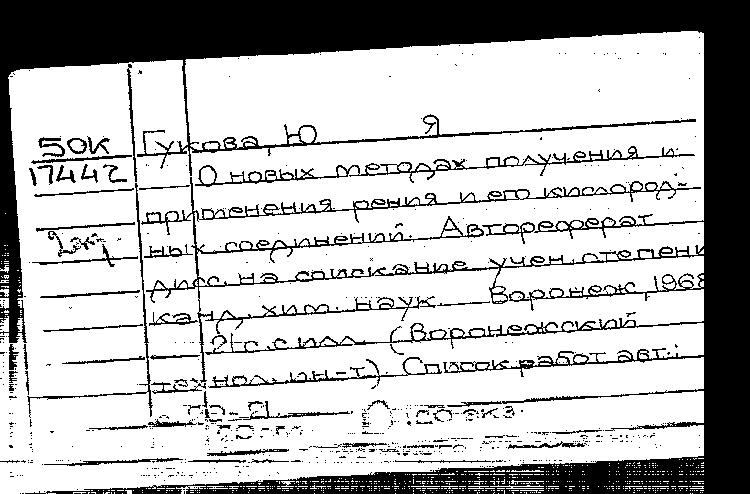 50К
17442
2экз
Гукова, Ю Я
О новых методах получения и
применения рения и его кислород-
ных соединений. Автореферат
дисс. на соискание учен. степени
канд. хим. наук. Воронеж, 1968
21 с. с илл. (Воронежский
технол. ин-т). Список работ авт.:
с. 20-21. 100 экз.